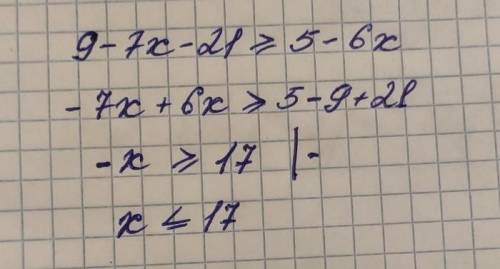 9 - 7x - 21 ⩾ 5 - 6x
- 7x + 6x ⩾ 5 - 9 + 21
- x ⩾ 17 | -
x ⩽ 17